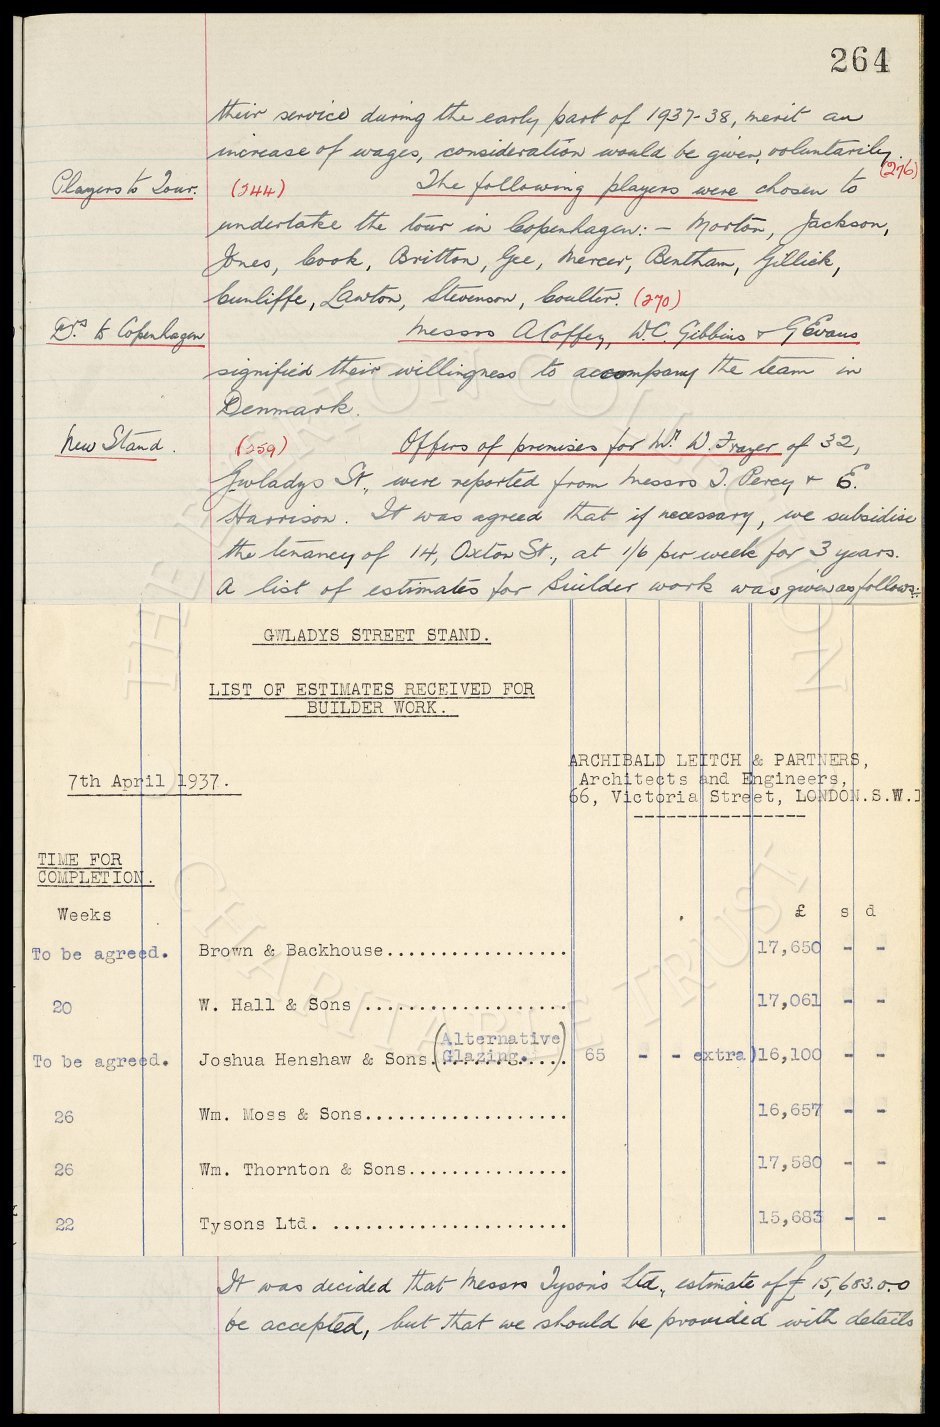 264
their service during the early part of 1937-38, merit an
increase of wages, consideration would be given, voluntarily.
(276)
Players to Tour. (244) The following players were chosen to
undertake the tour in Copenhagen: - Morton, Jackson,
Jones, Cook, Britton, Gee, Mercer, Bentham, Gillick,
Cunliffe, Lawton, Stevenson, Coulter. (270)
Drs to Copenhagen Messrs A Coffey, W.C. Gibbins & G Evans
signified their willingness to accompany the team in
Denmark.
New Stand. (259) Offers of premises for Mr W. Frazer of 32,
Gwladys St., were reported from Messrs J. Percy & E.
Harrison. It was agreed that if necessary, we subsidise
the tenancy of 14, Oxton St., at 1/6 per week for 3 years.
A list of estimates for Builder work was given as follows:-
GWLADYS STREET STAND.
LIST OF ESTIMATES RECEIVED FOR
BUILDER WORK.
ARCHIBALD LEITCH & PARTNERS,
7th April 1937. Architects and Engineers,
66, Victoria Street, LONDON.S.W.1
TIME FOR
COMPLETION.
Weeks £ s d
To be agreed. Brown & Backhouse.................. 17,650 - -
20 W. Hall & Sons .................... 17,061 - -
To be agreed. Joshua Henshaw & Sons.(Alternative Glazing.....) 65 - - extra) 16,100 - -
26 Wm. Moss & Sons................... 16,657 - -
26 Wm. Thornton & Sons............... 17,580 - -
22 Tysons Ltd. ...................... 15,683 - -
It was decided that Messrs Tyson's Ltd., estimate of £15,683.0.0
be accepted, but that we should be provided with details
THE EVERTON COLLECTION
CHARITABLE TRUST